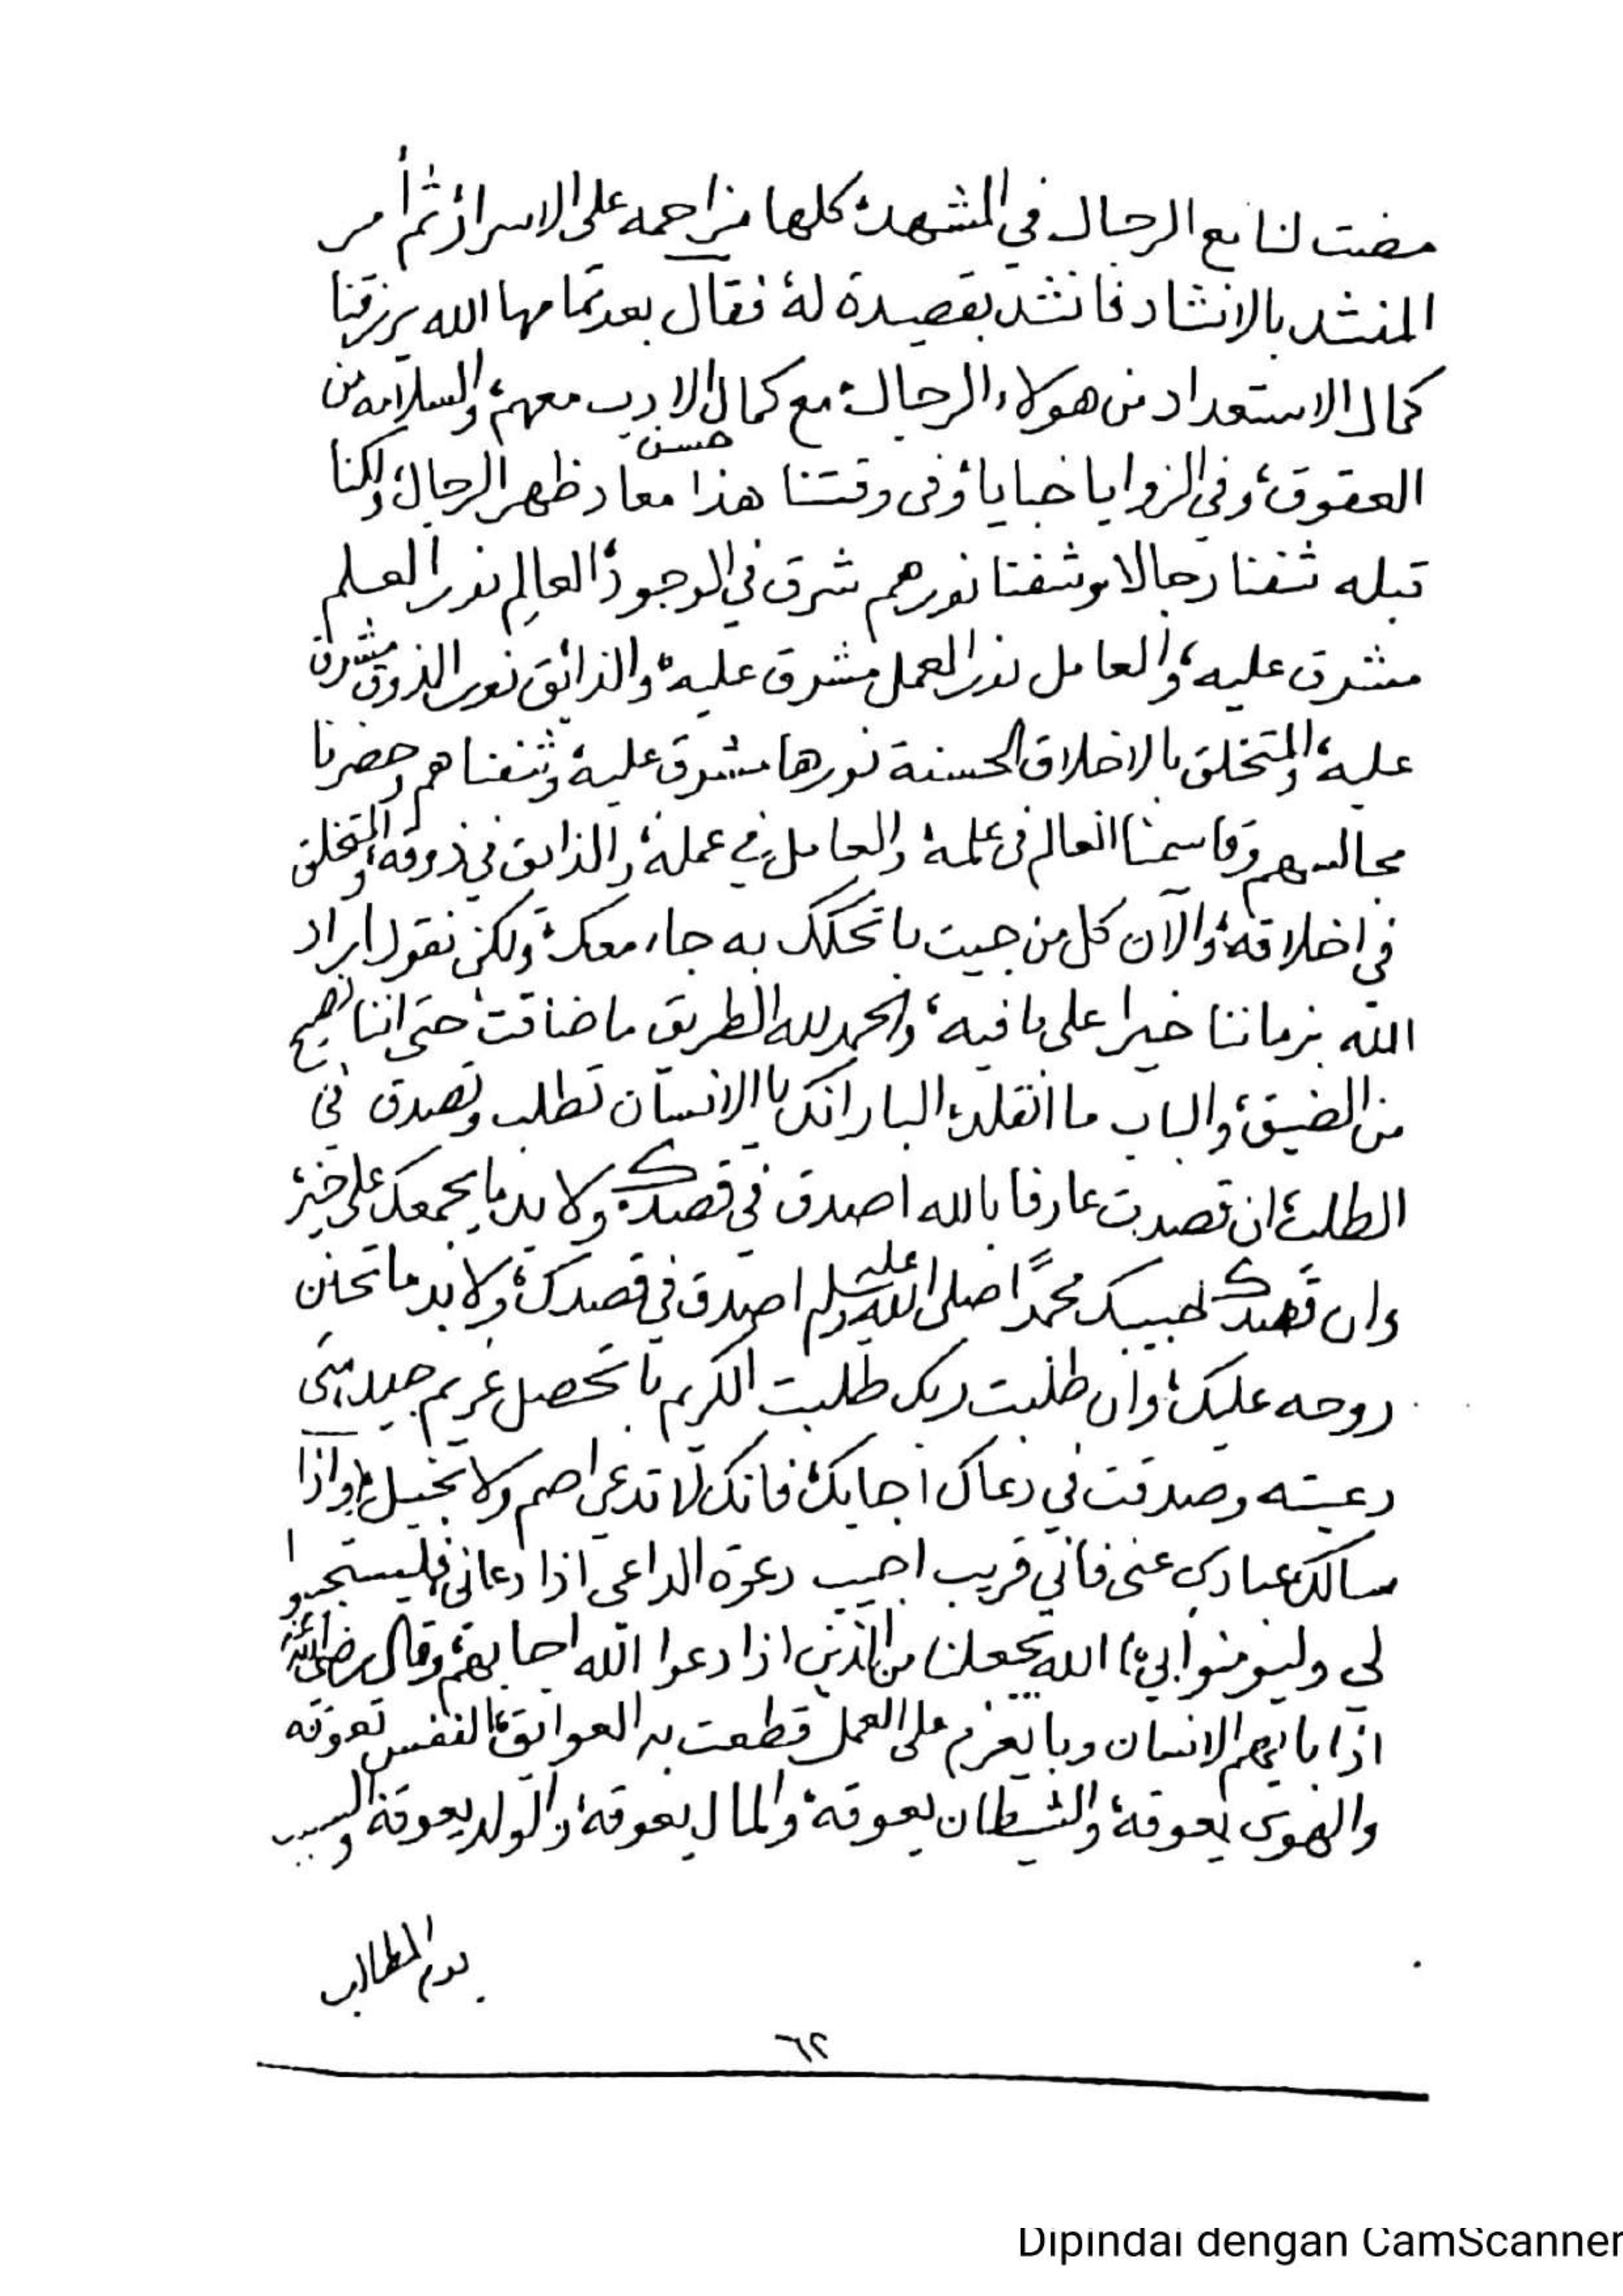 مضت لنا مع الرجال في المشهد، كلها مزاحمه على الاسرار، ثم أمر
المنشد بالانشاد فانشد بقصيدة له، فقال بعد تمامها الله يرزقنا
كمال الاستعداد من هولاء الرجال، مع كمال الادب معهم، والسلامه من
حسن
العقوق، وفي الزوايا خبايا، وفي وقتنا هذا معاد ظهر الرجال، ولكنا
قبله شفنا رجالا، وشفنا نورهم شرق في الوجود، العالم نور العلم
مشرق عليه، والعامل نور العمل مشرق عليه، والذائق نور الذوق مشرق
عليه، والمتخلق بالاخلاق الحسنة نورها مشرق عليه، وشفناهم وحضرنا
مجالسهم وقاسمنا العالم في علمه، والعامل في عمله، والذايق في ذوقه، والمتخلق
في اخلاقه، والآن كل من جيت باتحكك به جاء معك، ولكن نقول اراد
الله بزماننا خيرا على ما فيه، والحمد لله الطريق ما ضاقت حتى اننا نصيح
من الضيق، والباب ما انقلد، البار انك يا الانسان تطلب وتصدق في
الطلب، ان قصدت عارفا بالله اصدق في قصدك، ولا بد ما يجمعك على خير،
وان قصدك لحبيبك محمدًا صلى الله عليه وسلم اصدق في قصدك، ولا بد ما تحنن
روحه عليك، وان طلبت ربك طلبت الكريم با تحصل غريم جيد، متى
دعيته وصدقت في دعاك اجابك، فانك لا تدعي اصم ولا بخيل، واذا
سالك عبادي عني فاني قريب اجيب دعوة الداعي اذا دعاني فليستجيبوا
لي وليومنوا بي، الله يجعلنا من الذين اذا دعوا الله اجابهم، وقال رضي الله عنه
اذا با يهم الانسان وبا يعزم على العمل قطعت به العوايق، النفس تعوقه
والهوى يعوقه، والشيطان يعوقه، والمال يعوقه، والولد يعوقه، والسبب
يوم المطالب
٦٢
Dipindai dengan CamScanner